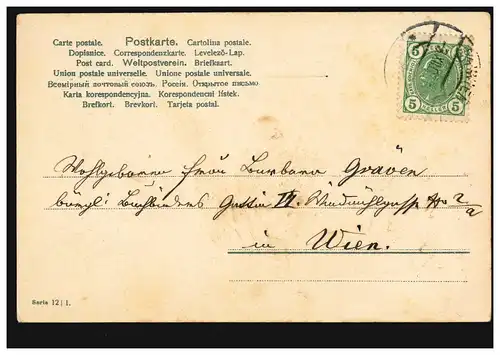 Carte postale. Postkarte. Cartolina postale.
Dopisnice. Correspondenzkarte. Levelező-Lap.
Post card. Weltpostverein. Briefkaart.
Union postale universelle. Unione postale universale.
Всемірный почтовый союзъ. Россія. Открытое письмо
Karta korespondencyjna. Korespondenční lístek.
Brefkort. Brevkort. Tarjeta postal.
5 5
5 HELLER 5
Wohlgeboren Frau Barbara Gräven
bürgl: Buchbinders Gattin II. Windmühlgasse No 2/a
in Wien.
Serie 12 | 1.